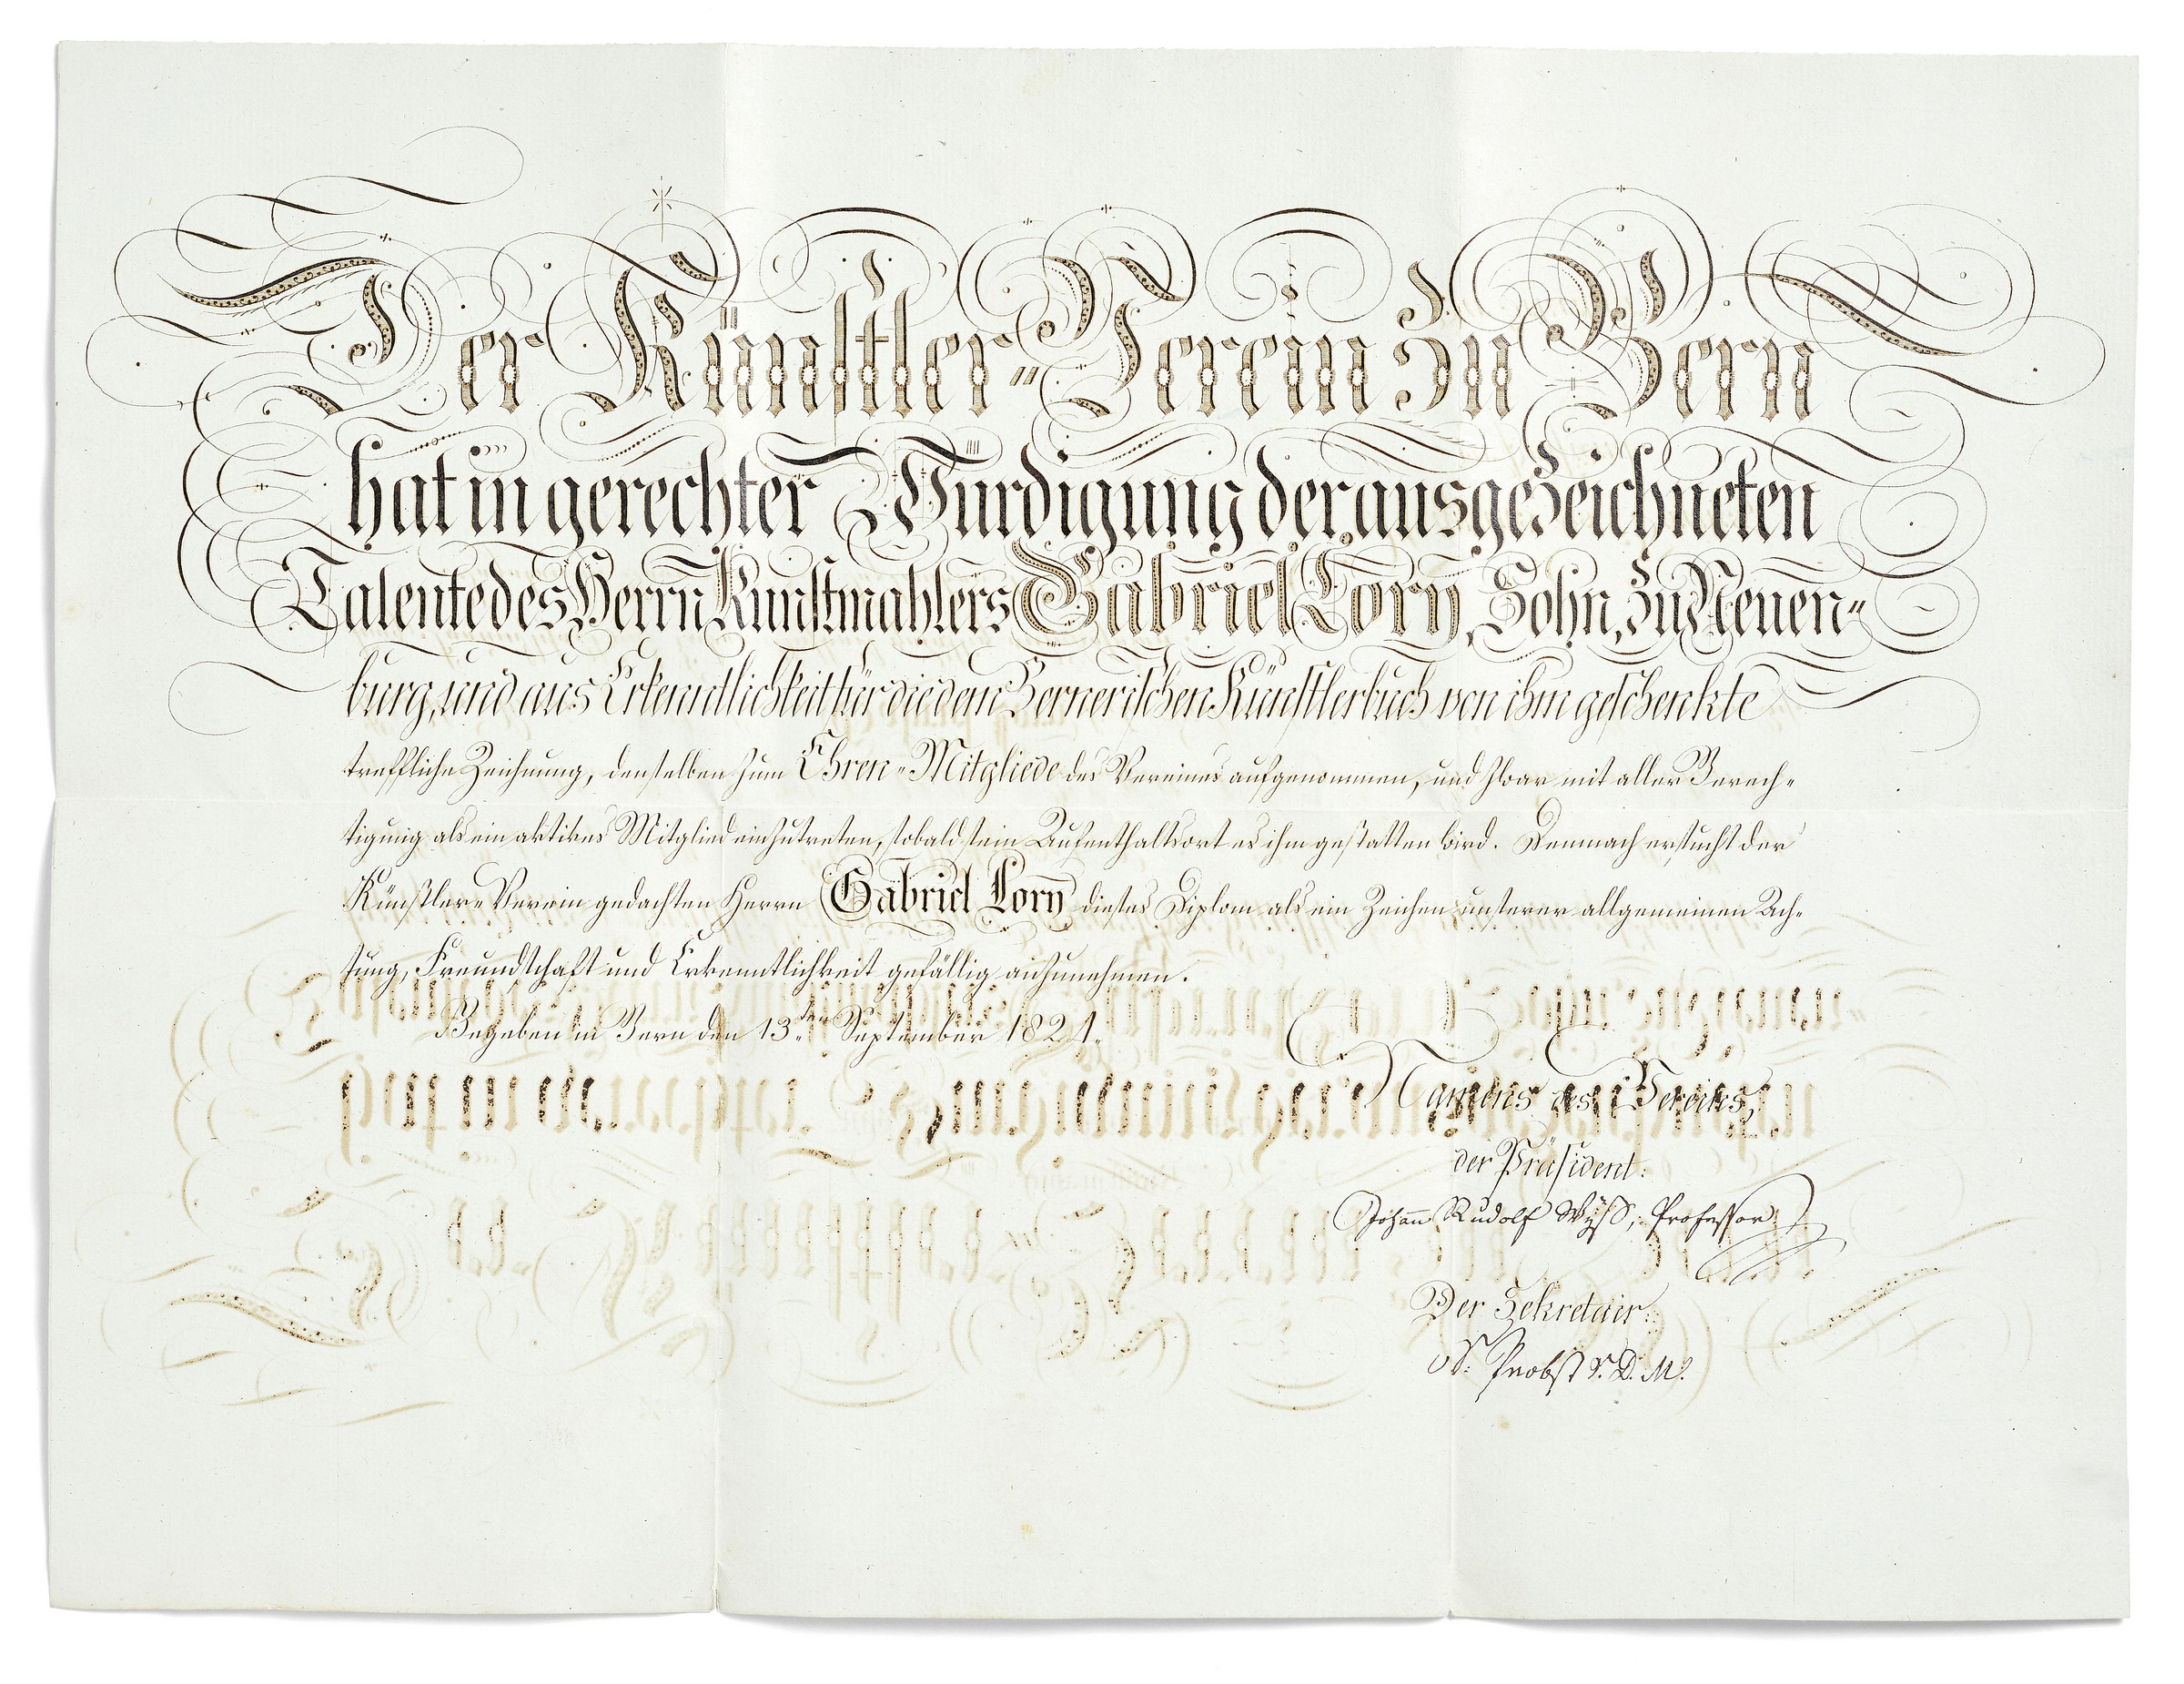 Der Künstler=Verein zu Bern
hat in gerechter Würdigung der ausgezeichneten
Talente des Herrn Kunstmahlers Gabriel Lory, Sohn, zu Neuen=
burg, und aus Erkenntlichkeit für die dem Bernerischen Künstlerbuch von ihm geschenkte
treffliche Zeichnung, denselben zum Ehren=Mitgliede des Vereines aufgenommen, und zwar mit aller Berech=
tigung als ein aktives Mitglied einzutreten, sobald sein Aufenthaltsort es ihm gestatten wird. Demnach ersucht der
Künstler=Verein gedachten Herrn Gabriel Lory dieses Diplom als ein Zeichen unserer allgemeinen Ach=
tung, Freundschaft und Erkenntlichkeit gefällig anzunehmen.
Gegeben in Bern den 13.ten September 1821.
Namens des Vereins,
der Präsident:
Johann Rudolf Wyß, Professor
Der Sekretair:
S. Probst V. D. M.